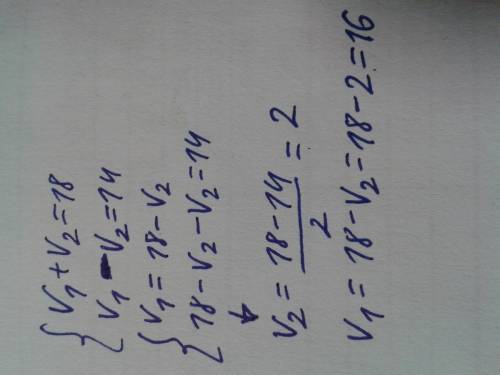 { V₁ + V₂ = 18
V₁ - V₂ = 14
{ V₁ = 18 - V₂
18 - V₂ - V₂ = 14
↓
V₂ = (18 - 14)/2 = 2
V₁ = 18 - V₂ = 18 - 2 = 16